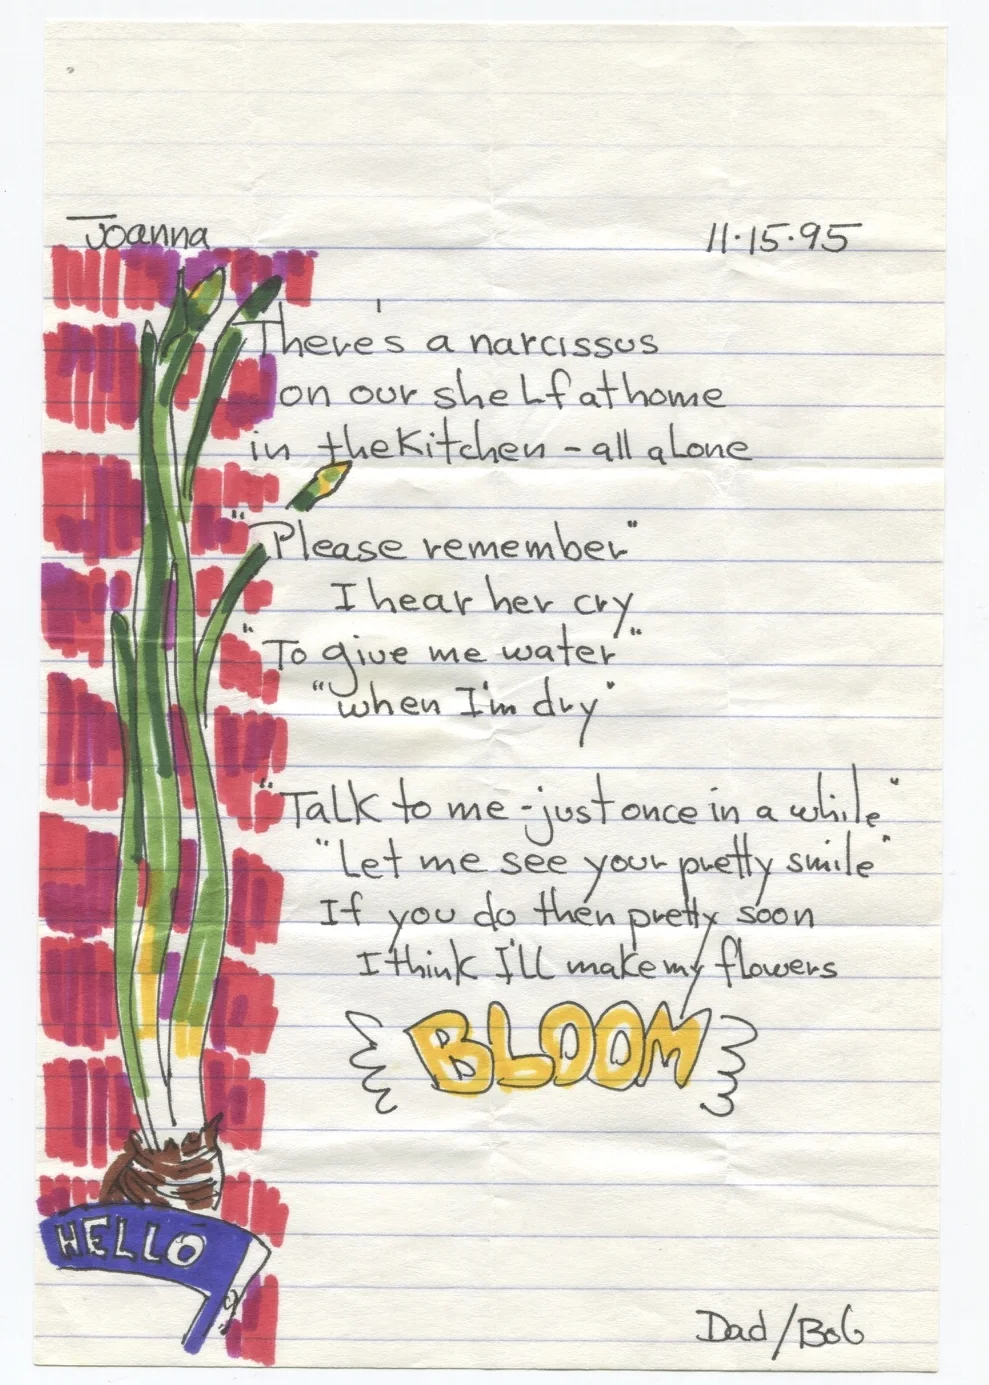 Joanna
11·15·95
There's a narcissus
on our shelf at home
in the Kitchen - all alone
"Please remember"
I hear her cry
"To give me water"
"when I'm dry"
"Talk to me - just once in a while"
"Let me see your pretty smile"
If you do then pretty soon
I think I'll make my flowers
BLOOM
HELLO
Dad/Bob